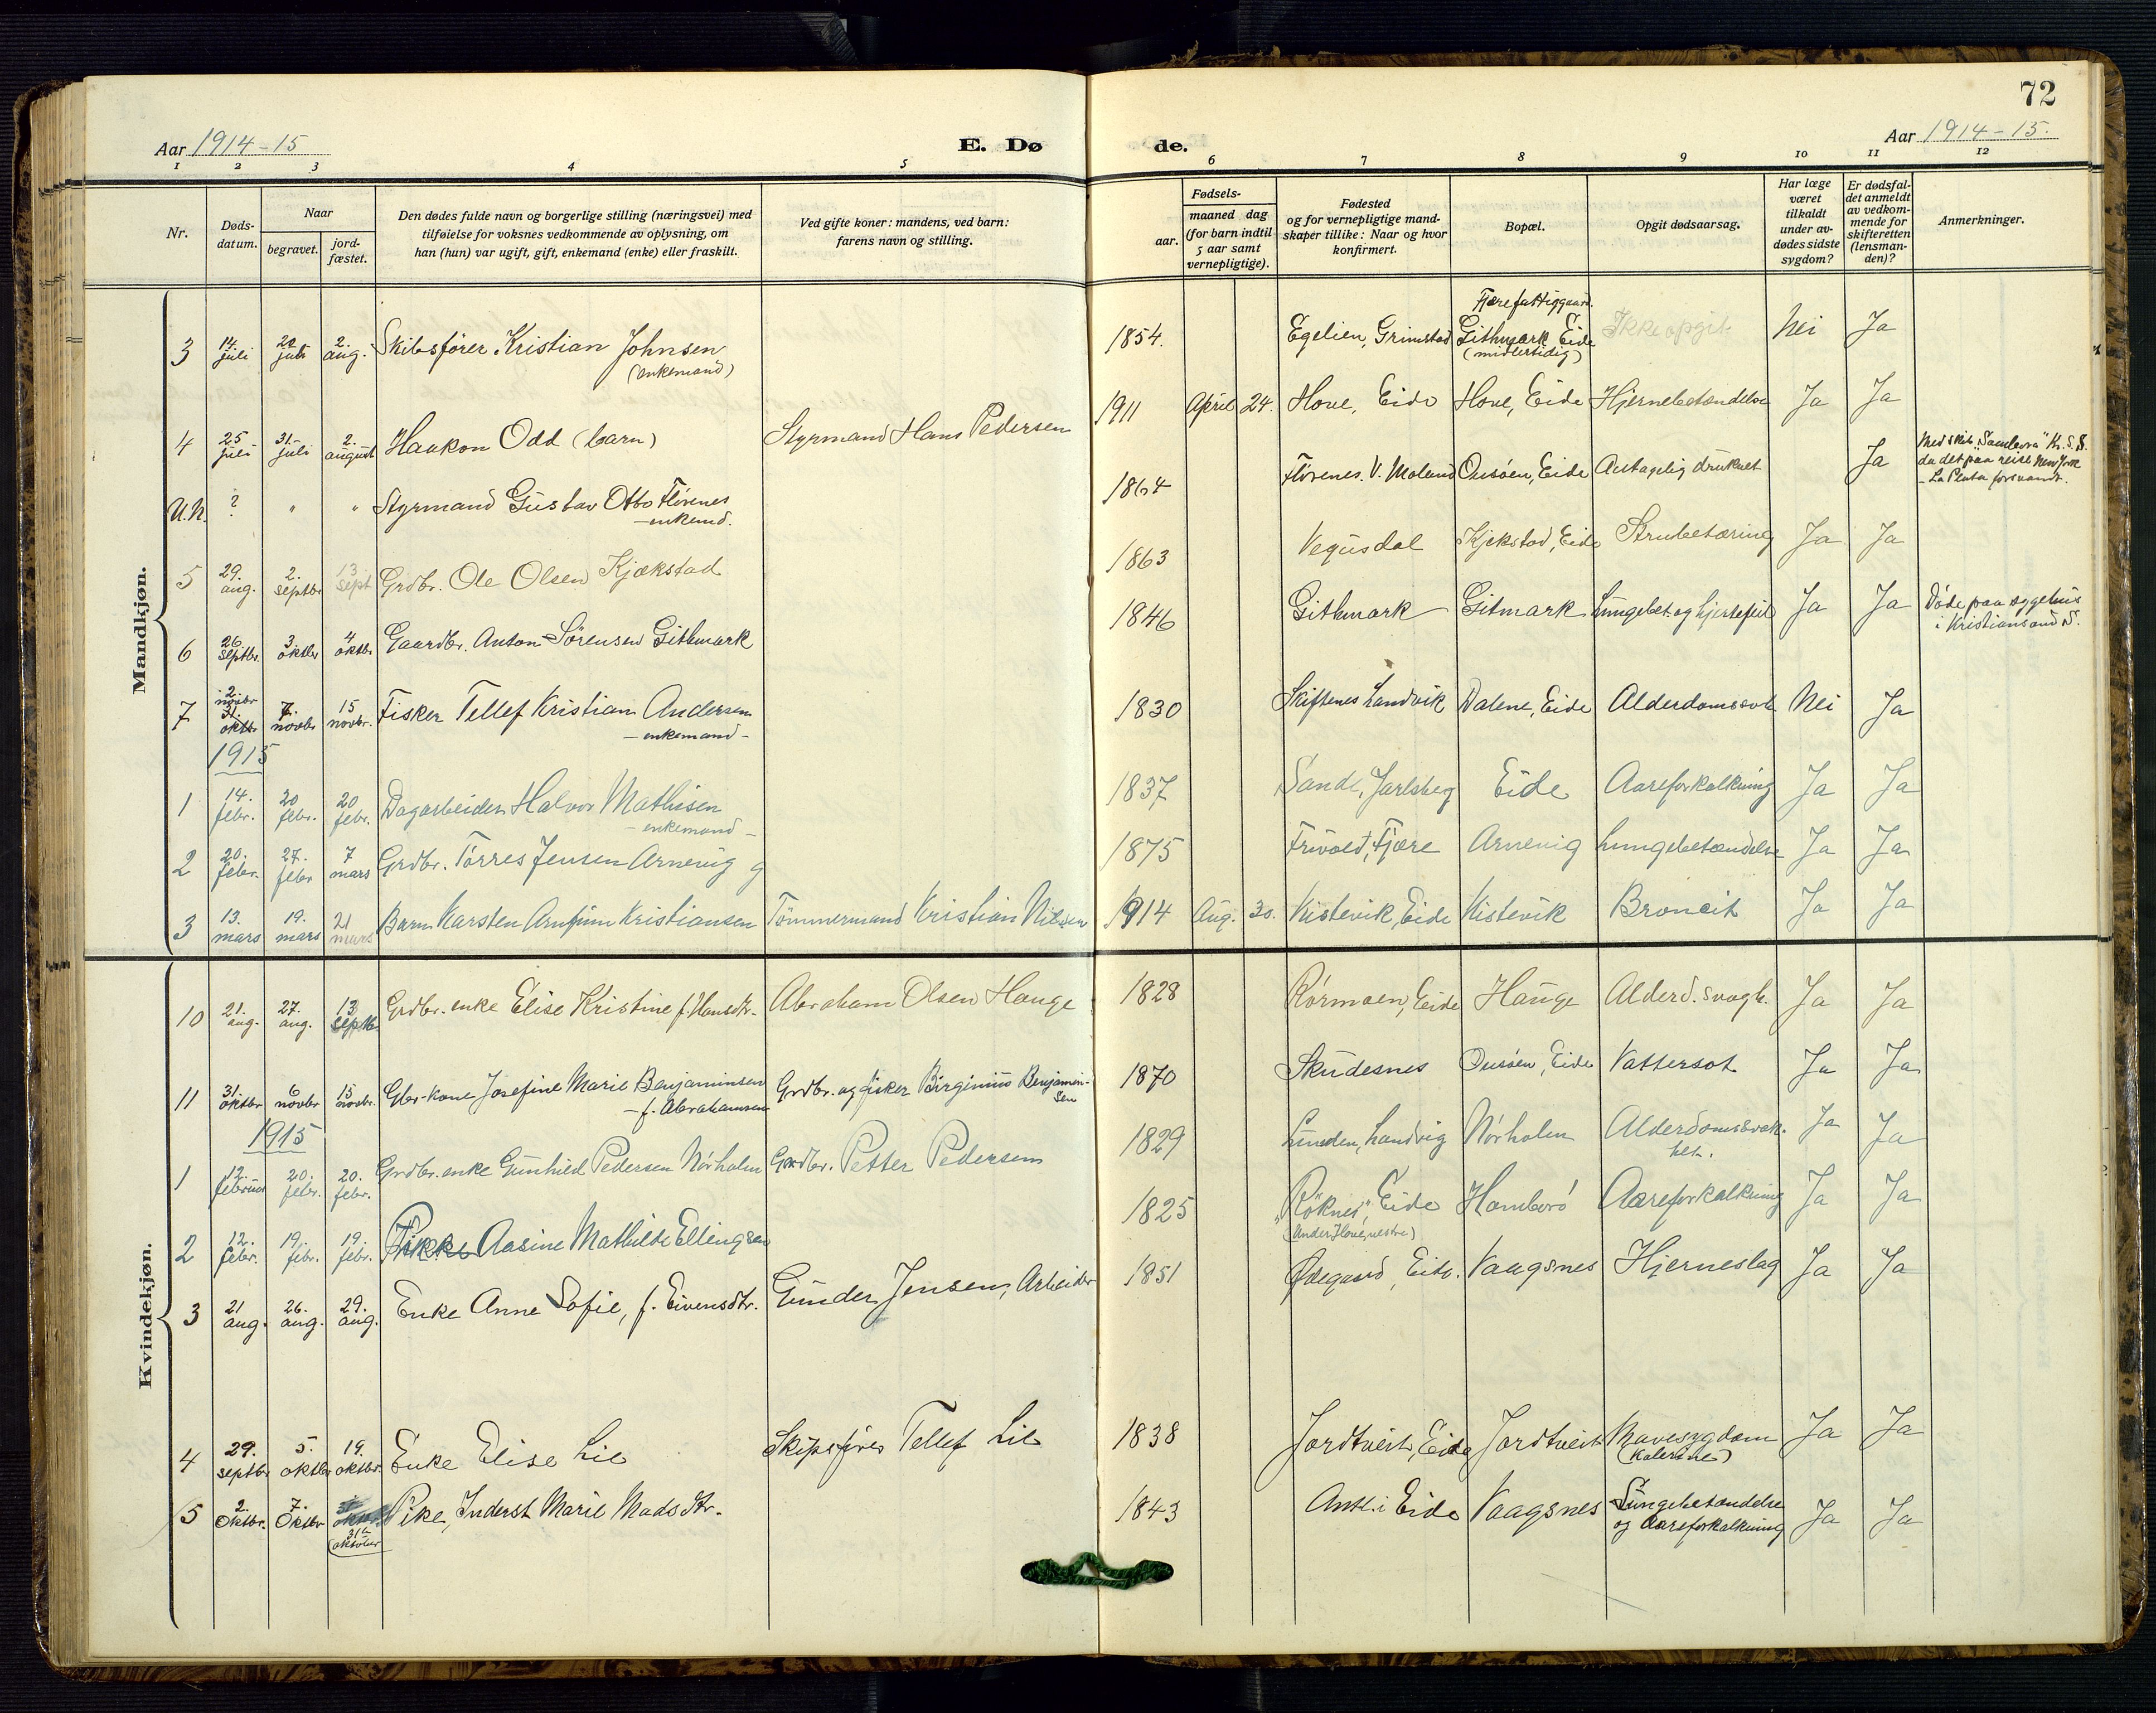 72
Aar 1914-15
E. Dø
de.
Aar 1914-15.
1 2 3 4 5 6 7 8 9 10 11 12
Nr.
Døds-
datum.
Naar
begravet.
jord-
fæstet.
Den dødes fulde navn og borgerlige stilling (næringsvei) med
tilføielse for voksnes vedkommende av oplysning, om
han (hun) var ugift, gift, enkemand (enke) eller fraskilt.
Ved gifte koner: mandens, ved barn:
farens navn og stilling.
Fødsels-
aar.
maaned dag
(for barn indtil
5 aar samt
vernepligtige).
Fødested
og for vernepligtige mand-
skaper tillike: Naar og hvor
konfirmert.
Bopæl.
Opgit dødsaarsag.
Har læge
været
tilkaldt
under av-
dødes sidste
sygdom?
Er dødsfal-
det anmeldt
av vedkom-
mende for
skifteretten
(lensman-
den)?
Anmerkninger.
Mandkjøn.
3 14. juli 20 juli 2. aug. Skibsfører Kristian Johnsen
(enkemand)
1854. Egelien, Grimstad Fjære fattiggaard. Githmark Eide
(midlertidig)
Ikke opgit Nei Ja
4 25 juli 31. juli 2. august Haakon Odd (barn) Styrmand Hans Pedersen 1911 April 24. Hove, Eide Hove, Eide Hjernebetændelse Ja Ja
U.N. ? " " Styrmand Gustav Otto Flørenes
- enkemd.
1864 Flørenes. V. Moland Ousøen, Eide Antagelig druknet Ja
Med skib "Sambora" Kr. S. S.
da det paa reise New York
- La Plata forsvandt.
5 29. aug. 2. septbr 13. sept Grdbr. Ole Olsen Kjækstad 1863 Vegusdal Kjekstad, Eide Strubetæring Ja Ja
6 26. septbr. 3. oktbr 4 oktbr Gaardbr. Anton Sørensen Githmark 1846 Githmark Gitmark Lungebet. og hjertefeil Ja Ja Døde paa sygehus
i Kristiansand S.
7 2. novbr 31. oktbr 7. novbr 15 novbr. Fisker Tellef Kristian Andersen
- enkemand -
1830 Skiftenes Landvik Dalene, Eide Alderdomssvak Nei Ja
1915
1 14. febr. 20 febr. 20 febr. Dagarbeider Halvor Mathisen
- enkemand -
1837 Sande, Jarlsberg Eide Aareforkalkning Ja Ja
2 20. febr. 27. febr 7 mars Grdbr. Tørres Jensen Arnevig g 1875 Frivold, Fjære Arnevig Lungebetændelse Ja Ja
3 13. mars 19. mars 21 mars Barn Karsten Arnfinn Kristiansen Tømmermand Kristian Nilsen 1914 Aug. 30. Kistevik, Eide Kistevik Broncit Ja Ja
Kvindekjøn.
10 21. aug. 27. aug. 13 septbr Grdbr. enke Elise Kristine f. Hansdtr. Abraham Olsen Hauge 1828 Rørmoen, Eide Hauge Alderd. svagh. Ja Ja
11 31. oktbr 6 novbr 15 novbr. Gbr-kone Josefine Marie Benjaminsen
- f. Abrahamsen
Grdbr. og fisker Birginius Benjamin-
sen
1870 Skudesnes Ousøen, Eide Vattersot Ja Ja
1915
1 12. februar 20. febr. 20. febr. Grdbr. enke Gunhild Pedersen Nørholm Grdbr. Petter Pedersen 1829 Lunden, Landvig Nørholm Alderdomssvak-
het.
Ja Ja
2 12. febr. 19. febr. 19. febr. Pike Aasine Mathilde Ellingsen 1825 "Røknes", Eide
(Under Hove, vestre)
Homborø Aareforkalkning Ja Ja
3 21 aug. 26. aug. 29. aug. Enke Anne Sofie, f. Eivensdtr. Gunder Jensen, Arbeider 1851 Ødegaard, Eide. Vaagsnes Hjerneslag Ja Ja
4 29. septbr 5. oktbr 19. oktbr. Enke Elise Lie Skipsfører Tellef Lie 1838 Jordtveit, Eide Jordtveit Mavesygdom Ja Ja
5 2. Oktbr. 7. Oktbr 31te oktober Pike, Inderst Marie Madsdtr. 1843 Antl. i Eide Vaagsnes Lungebetændelse
og Aareforkalkning
Ja Ja